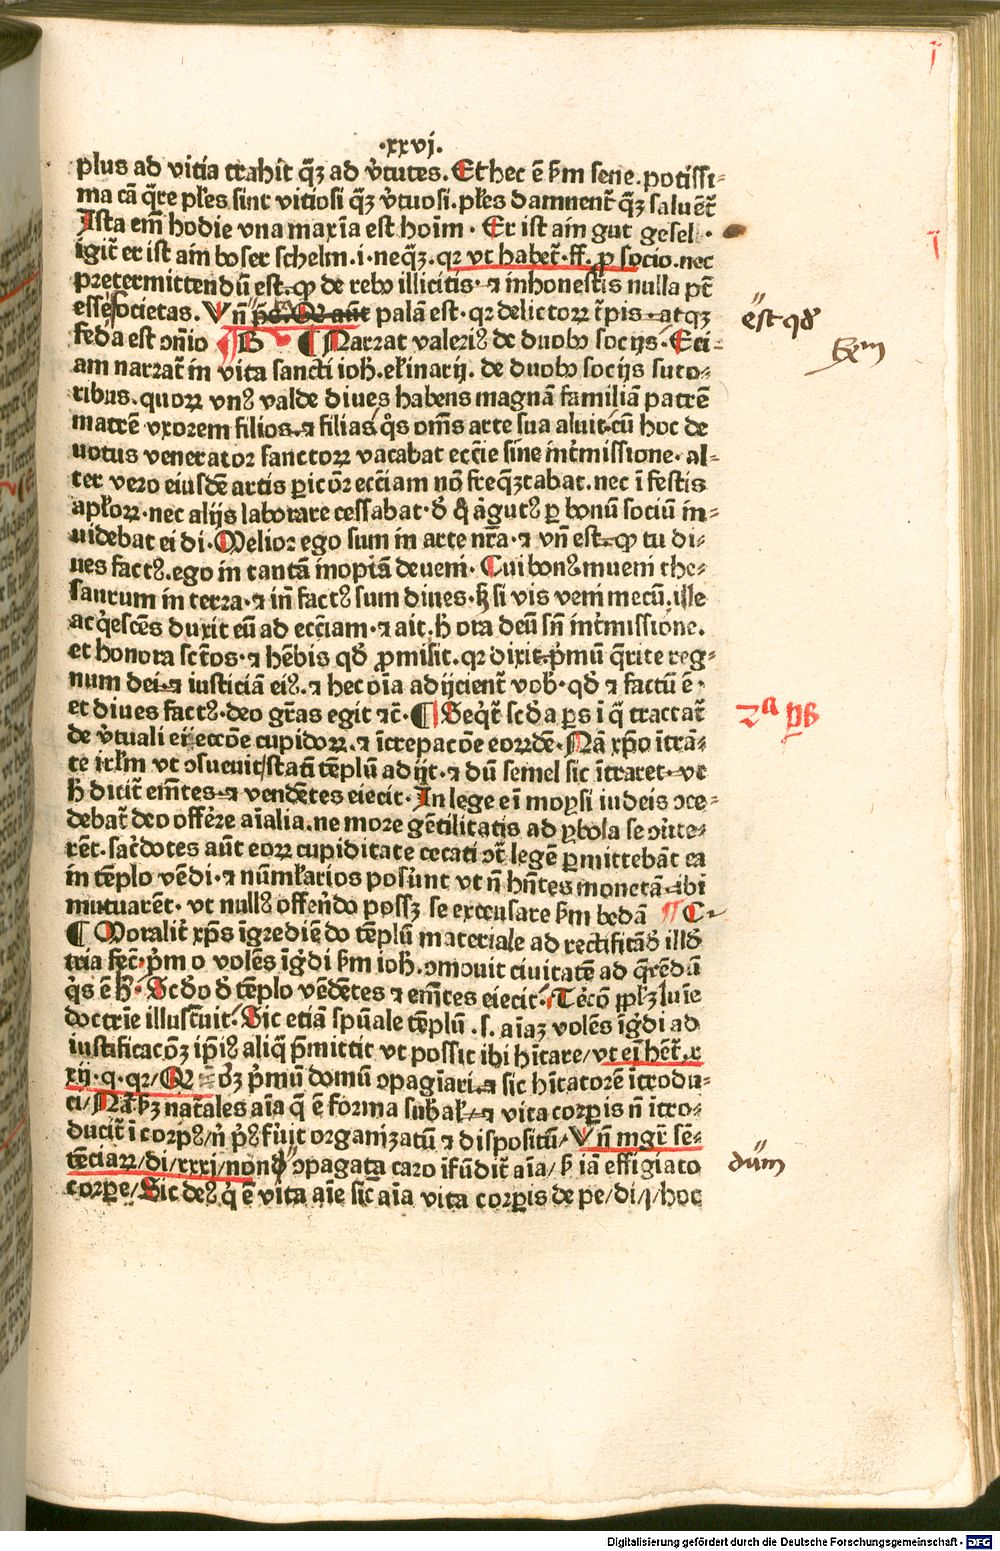 ·xxvj.
plus ad vitia trahit q̄ꝫ ad v̓tutes. Et hec ē ẜm sene. potissi-
ma cā q̄re ples sint vitiosi q̄ꝫ v̓tuosi. ples damnent̄ q̄ꝫ saluēt̄
Ista em̄ hodie vna maxīa est hoīm· Er ist ain gut gesel·
igit̄ er ist ain boser schelm·i·neq̄ꝫ·qꝛ vt habet̄·ff·ꝓ socio.nec
pretermittendū est·ꝙ de rebꝰ illicitis·⁊ inhonestis nulla pt̄
esse societas. Vn̄ palā est·qꝛ delictoꝝ t̄pis·atqꝫ
feda est oīo B ¶ Narrat valeriꝰ de duobꝰ socijs· Eti-
am narrat̄ in vita sancti ioh̄.elinarij. de duobꝰ socijs suto-
ribus.quoꝝ vnꝰ valde diues habens magnā familiā patrē
matrē vxorem filios·⁊ filias q̊s om̄s arte sua aluit·cū hoc de
uotus venerator sanctoꝝ vacabat ecc̄ie sine int̄missione·al-
ter vero eiusdē artis pericō2 ecc̄iam nō freq̄ꝫtabat.nec ī festis
aploꝝ·nec alijs laborare cessabat·ꝺ̓ ꝗ̓ āgutꝰ ꝑ bonū sociū in-
uidebat ei di·Melior ego sum in arte nr̄a·⁊ vn̄ est·ꝙ tu di-
ues factꝰ.ego in tantā inopiā deueni· Cui bonꝰ inueni the-
saurum in terra·⁊ in̄ factꝰ sum diues·ꝗ̄ si vis veni mecū.ille
acq̓escēs duxit eū ad ecc̄iam·⁊ ait.h̄ ora deū sn̄ int̄missiōne.
et honora sctōs·⁊ hēbis qd̄ ꝓmisit.qꝛ dixit·p̄mū q̄rite reg-
num dei·⁊ iusticiā eiꝰ.⁊ hec oīa adijcient̄ vob̄·qd̄ ⁊ factū ē·
et diues factꝰ·deo gr̄as egit ⁊c̄·¶ Seq̓t̄ scd̄a pars ī q̄ tractat̄
de v̓tuali eiectōe cupidoꝝ.⁊ īcrepacōe eorūdē·Nā xp̄o ītrā-
te irl̄m vt ꝯsueuit/statī tēplū adijt·⁊ dū semel sic ītraret·vt
h̄ dicit̄ emētes·⁊ vendētes eiecit·In lege eī moysi iudeis ꝯce-
debat̄ deo offērre aīalia.ne more gētilitatis ad ydola se ꝯūte-
rēt·sac̄dotes aūt eoꝝ cupiditate cecati ꝯt̄ legē ꝑmittebāt ea
in tēplo vēdi·⁊ nūmlarios posūnt vt n̄ hn̄tes monetā·ibi
mutuarēt·vt nullꝰ offerēdo possꝫ se excusare ẜm bedā C
¶ Moralit̄ xp̄s īgrediēdo tēplū materiale ad rectificād̄ illd̄
tria fec̄·p̄m o volēs īḡdi ẜm ioh̄.ꝯmouit ciuitatē ad q̄rēdū
q̊s ē h̄· Scd̄o ꝺ̓ tēplo vēdētes ⁊ emētes eiecit· Tērcō ꝑpl̄ꝫ luīe
doctrīe illust̄uit· Sic etiā spūale tēplū .s. aīaꝫ volēs īḡdi ad
iustificacōꝫ ip̄iꝰ aliq̄ p̄mittit vt possit ibi hītare/vt eī hēt̄.x
xij·q·qꝛ/ ꝺ̓ꝫ p̄mū domū ꝯpagīari·⁊ sic hītatorē ītrodu-
ci/Nā ẜꝫ nat̄ales aīa q̄ ē forma sub̄al/⁊ vita corꝑis n̄ ītro-
ducit̄ ī corpꝰ/n̄ p̓ꝰ fuit organizatū ⁊ dispositū/ Vn̄ mgr̄ sē-
tēciaꝝ/di/xxxj/nond̄ ꝯpagata caro īfūdit̄ aīa/ẜ iā effigiato
corꝑe/ Sic deꝰ q̓ ē vita aīe sic̄ aīa vita corꝑis de pe/di/j/hoc
est qd̄
2ᵃ ps
dūm